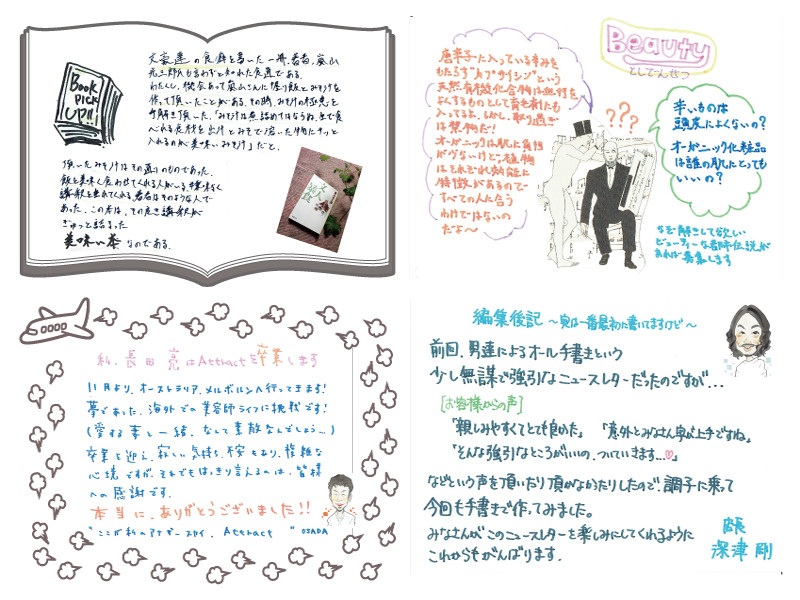 Book
PICK
UP!!
文豪達の食卓を書いた一冊。著者、嵐山
光三郎氏も言わずと知れた食通である。
わたくし、機会あって嵐山さんに握り飯とみそ汁を
作って頂いたことがある。その時、みそ汁の極意を
「みそ汁は煮詰めてはならぬ。生で食
べれる食材を出汁とみそで溶いた物にサッと
入れるのが美味いみそ汁」だと。
頂いたみそ汁はその通りのものであった。
飯を美味く食わせてくれる人がいる。
著者はそのような人で
あった。この本は、そのような
ぎゅっと詰まった
美味い本なのである。
Beauty
としでんせつ
唐辛子に入っている辛みを
もたらす"カプサイシン"という
天然有機化合物は血行を
よくするものとして育毛剤にも
入ってるよ。しかし、取り過ぎ
は禁物だ!
オーガニックは肌に負担
がかないけど、植物
はそれぞれ効能に
特徴があるので
すべての人に合う
わけではないの
だよ〜
???
辛いものは
頭皮によくないの?
オーガニック化粧品
は誰の肌にとっても
いいの?
なぞ解きして欲しい
ビューティーな都市伝説が
あれば募集します
私、長田 亮はAttractを卒業します
11月より、オーストラリア、メルボルンへ行ってきます!
夢であった、海外での美容師ライフに挑戦です!
(愛する妻と一緒、なんて素敵なんでしょう…)
卒業を迎え、寂しい気持ち、不安もあり、複雑な
心境ですが、それでもはっきり言えるのは、皆様
への感謝です。
本当に、ありがとうございました!!
"ここが私のアナザースカイ、Attract" OSADA
編集後記 〜実は一番最初に書いてますけど〜
前回、男達によるオール手書きという
少し無謀で強引なニュースレターだったのですが…
[お客様からの声]
「親しみやすくてとても良かった」 「意外とみなさん字が上手ですね」
「そんな強引なところがいいの、ついていきます…♡」
などという声を頂いたり頂かなかったりしたので、調子に乗って
今回も手書きで作ってみました。
みなさんがこのニュースレターを楽しみにしてくれるように
これからもがんばります。
店長
深津 剛